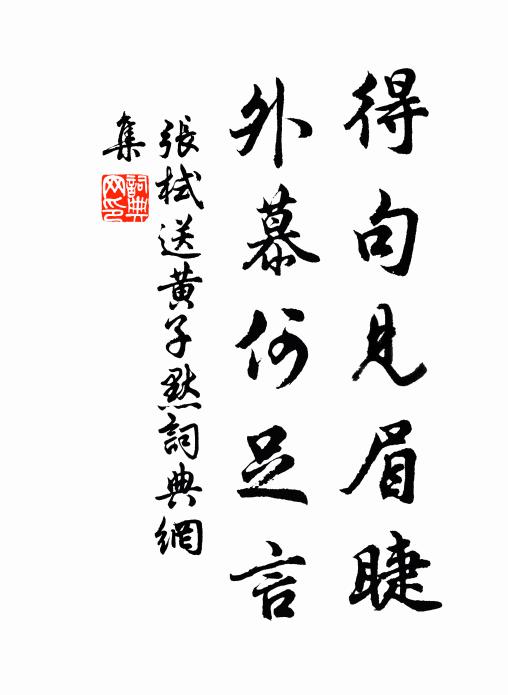 得句見眉睫
外慕何足言
張栻送黄子默詞典網
集
詞典
网印